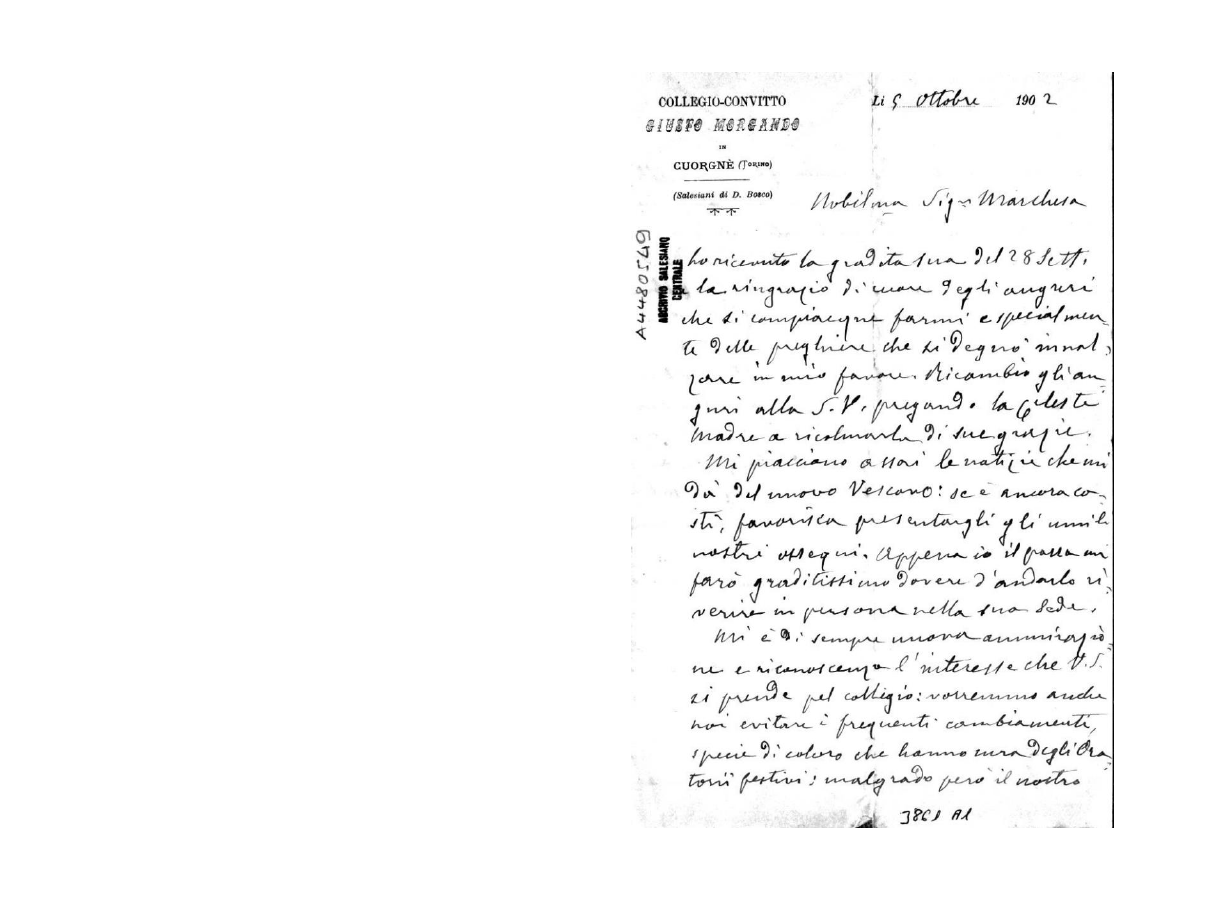 COLLEGIO-CONVITTO
GIUSTO MORGANDO
IN
CUORGNÈ (TORINO)
(Salesiani di D. Bosco)
Li 5 Ottobre 1902
Nobilma Sigra Marchesa
A4480549
ARCHIVIO SALESIANO
CENTRALE
ho ricevuto la gradita sua del 28 Sett.
e la ringrazio di cuore degli auguri
che si compiacque farmi e specialmen-
te delle preghiere che si degnò innal-
zare in mio favore. Ricambio gli au-
guri alla S.V. pregando la Celeste
Madre a ricolmarla di sue grazie.
Mi piacciono assai le notizie che mi
dà del nuovo Vescovo: se è ancora co-
stì, favorisca presentargli gli umili
nostri ossequi. Appena io il possa mi
farò graditissimo dovere d'andarlo ri-
verire in persona nella sua Sede.
Mi è di sempre nuova ammirazio-
ne e riconoscenza l'interesse che V.S.
si prende pel collegio: vorremmo anche
noi evitare i frequenti cambiamenti,
specie di coloro che hanno cura degli Ora-
torii festivi: malgrado però il nostro